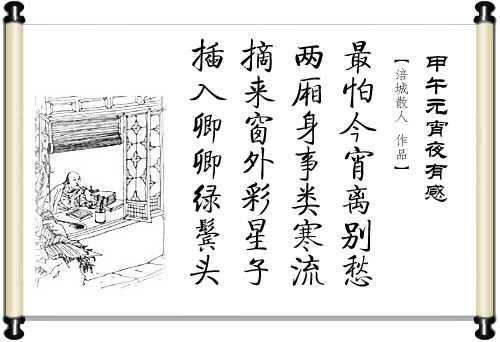 甲午元宵夜有感
【涪城散人 作品】
最怕今宵离别愁
两厢身事类寒流
摘来窗外彩星子
插入卿卿绿鬓头